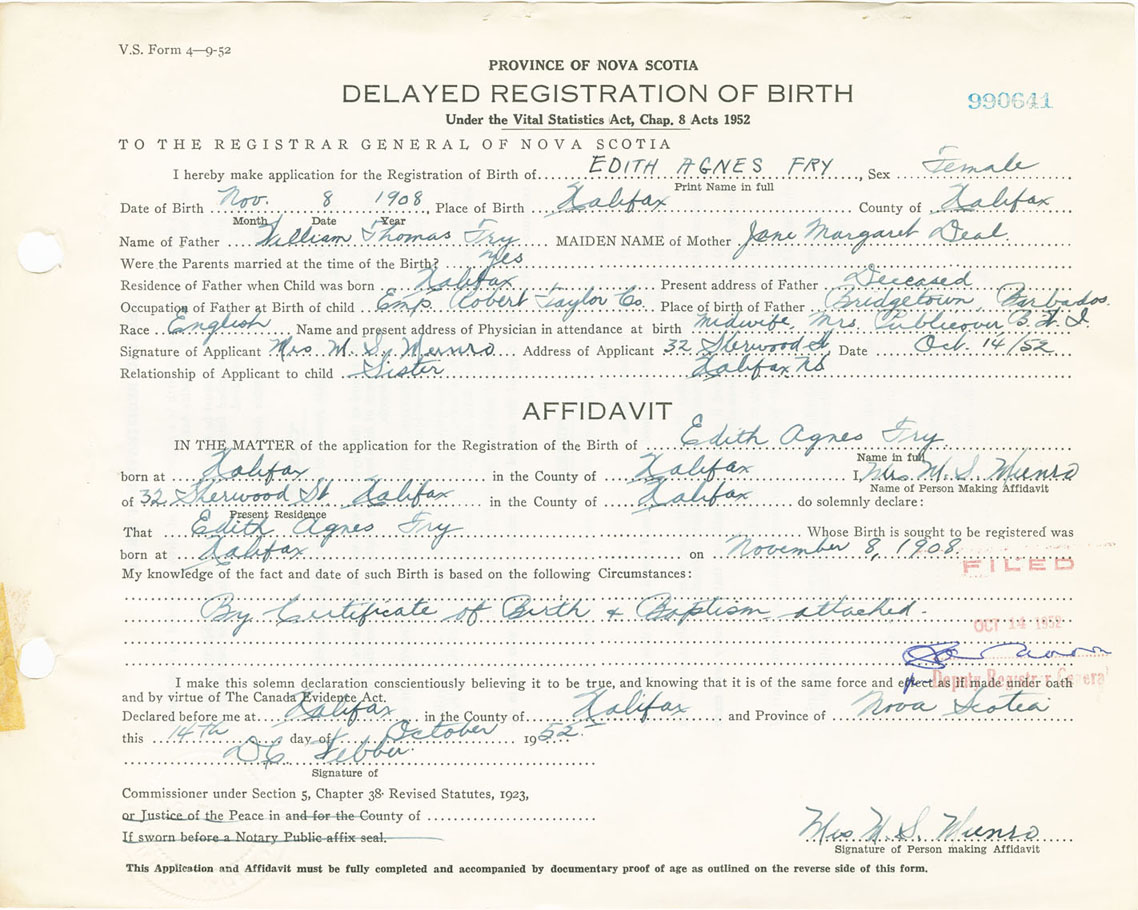 V.S. Form 4—9-52
PROVINCE OF NOVA SCOTIA
DELAYED REGISTRATION OF BIRTH
990641
Under the Vital Statistics Act, Chap. 8 Acts 1952
TO THE REGISTRAR GENERAL OF NOVA SCOTIA
I hereby make application for the Registration of Birth of EDITH AGNES FRY, Sex Female
Print Name in full
Date of Birth Nov. 8 1908, Place of Birth Halifax County of Halifax
Month Date Year
Name of Father William Thomas Fry MAIDEN NAME of Mother Jane Margaret Deal
Were the Parents married at the time of the Birth? Yes
Residence of Father when Child was born Halifax Present address of Father Deceased
Occupation of Father at Birth of child Emp. Robert Taylor Co. Place of birth of Father Bridgetown, Barbados.
Race English Name and present address of Physician in attendance at birth midwife, Mrs Publicover B.W.I.
Signature of Applicant Mrs. M. S. Munro Address of Applicant 32 Sherwood St, Date Oct. 14/52
Relationship of Applicant to child Sister Halifax NS
AFFIDAVIT
IN THE MATTER of the application for the Registration of the Birth of Edith Agnes Fry
Name in full
born at Halifax in the County of Halifax I, Mrs M. S. Munro
Name of Person Making Affidavit
of 32 Sherwood St Halifax in the County of Halifax do solemnly declare:
Present Residence
That Edith Agnes Fry Whose Birth is sought to be registered was
born at Halifax on November 8, 1908
My knowledge of the fact and date of such Birth is based on the following Circumstances:
FILED
By Certificate of Birth & Baptism attached.
OCT 14 1952
I make this solemn declaration conscientiously believing it to be true, and knowing that it is of the same force and effect as if made under oath
Deputy Registrar General
and by virtue of The Canada Evidence Act.
Declared before me at Halifax in the County of Halifax and Province of Nova Scotia
this 14th day of October 1952
D C Webber
Signature of
Commissioner under Section 5, Chapter 38 Revised Statutes, 1923,
or Justice of the Peace in and for the County of
If sworn before a Notary Public affix seal.
Mrs M. S. Munro
Signature of Person making Affidavit
This Application and Affidavit must be fully completed and accompanied by documentary proof of age as outlined on the reverse side of this form.